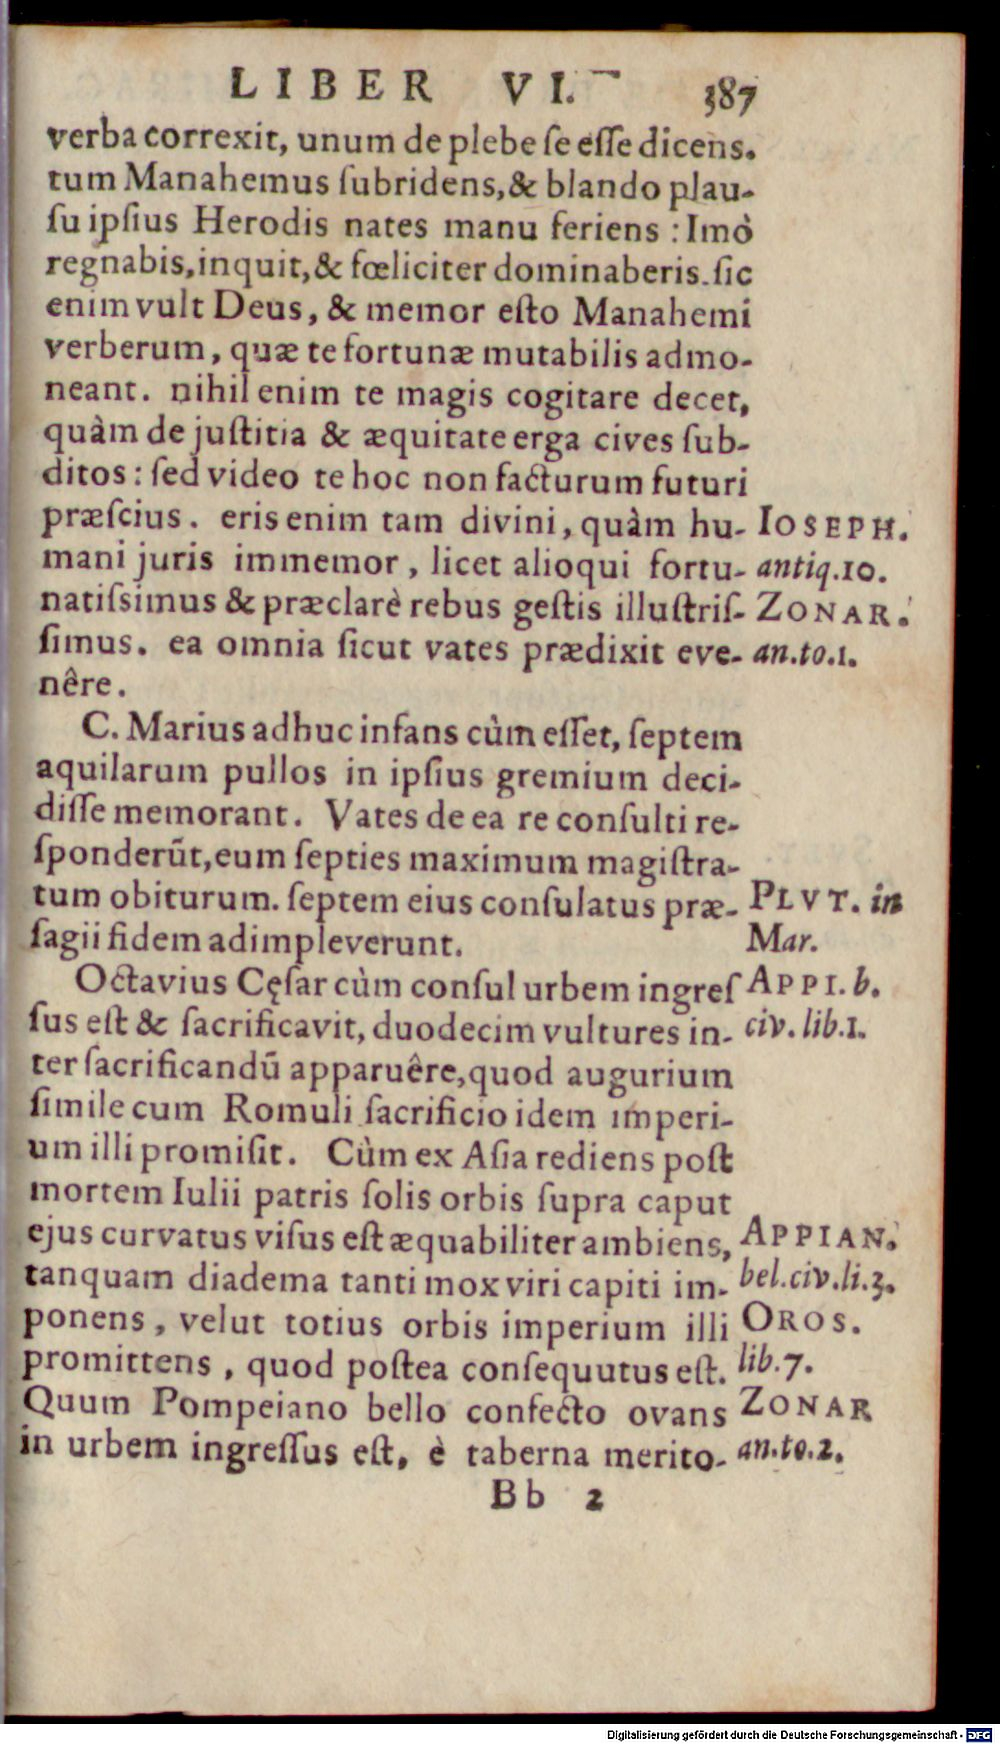 LIBER VI. 387
verba correxit, unum de plebe ſe eſſe dicens.
tum Manahemus ſubridens,& blando plau-
ſu ipſius Herodis nates manu feriens : Imò
regnabis,inquit,& fœliciter dominaberis.ſic
enim vult Deus, & memor eſto Manahemi
verberum, quæ te fortunæ mutabilis admo-
neant. nihil enim te magis cogitare decet,
quàm de juſtitia & æquitate erga cives ſub-
ditos : ſed video te hoc non facturum futuri
præſcius. eris enim tam divini, quàm hu- IOSEPH.
mani juris immemor, licet alioqui fortu- antiq.10.
natiſsimus & præclarè rebus geſtis illuſtriſ- ZONAR.
ſimus. ea omnia ſicut vates prædixit eve- an.to.1.
nêre.
C. Marius adhuc infans cùm eſſet, ſeptem
aquilarum pullos in ipſius gremium deci-
diſſe memorant. Vates de ea re conſulti re-
ſponderūt,eum ſepties maximum magiſtra-
tum obiturum. ſeptem eius conſulatus præ- PLVT. in
ſagii fidem adimpleverunt. Mar.
Octavius Cęſar cùm conſul urbem ingreſ APPI. b.
ſus eſt & ſacrificavit, duodecim vultures in- civ. lib.1.
ter ſacrificandū apparuêre,quod augurium
ſimile cum Romuli ſacrificio idem imperi-
um illi promiſit. Cùm ex Aſia rediens poſt
mortem Iulii patris ſolis orbis ſupra caput
ejus curvatus viſus eſt æquabiliter ambiens, APPIAN.
tanquam diadema tanti mox viri capiti im- bel.civ.li.3.
ponens, velut totius orbis imperium illi OROS.
promittens, quod poſtea conſequutus eſt. lib.7.
Quum Pompeiano bello confecto ovans ZONAR
in urbem ingreſſus eſt, è taberna merito- an.to.2.
Bb 2
Digitalisierung gefördert durch die Deutsche Forschungsgemeinschaft - DFG